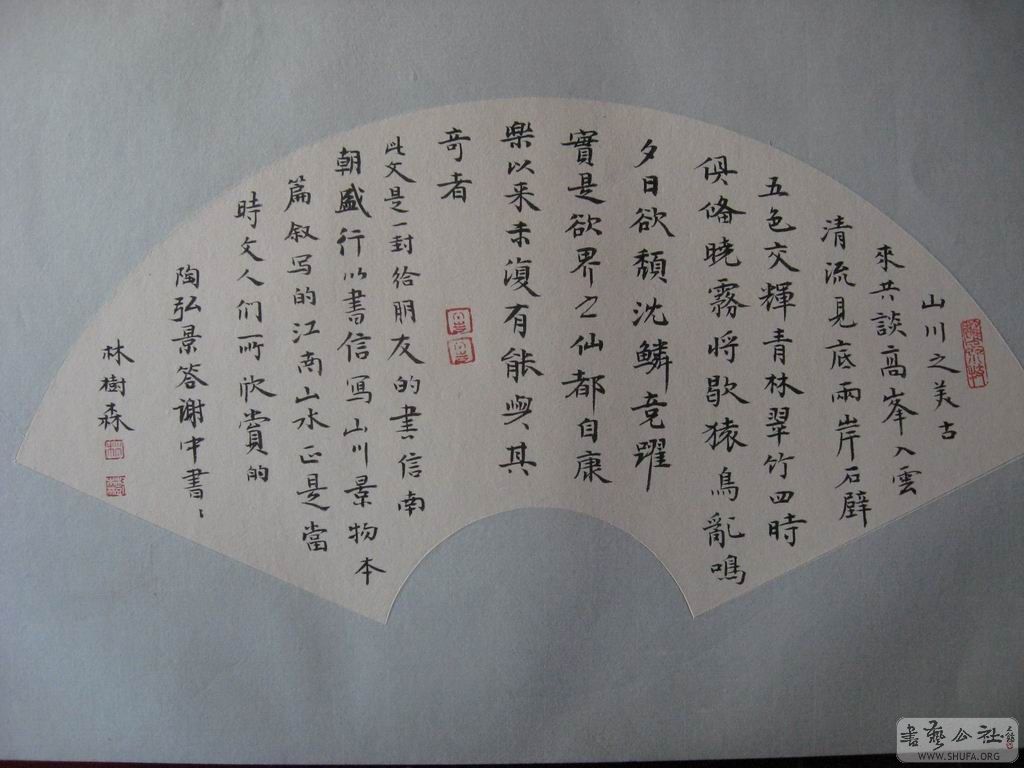 山川之美古
來共談高峯入雲
清流見底兩岸石壁
五色交輝青林翠竹四時
俱俻曉霧将歇猿鳥亂鳴
夕日欲頹沈鱗竞躍
實是欲界之仙都自康
樂以来未復有能與其
竒者
此文是一封给朋友的書信南
朝盛行以書信寫山川景物本
篇叙写的江南山水正是當
時文人们所欣賞的
陶弘景答谢中書書
林樹森
書藝公社
WWW.SHUFA.ORG